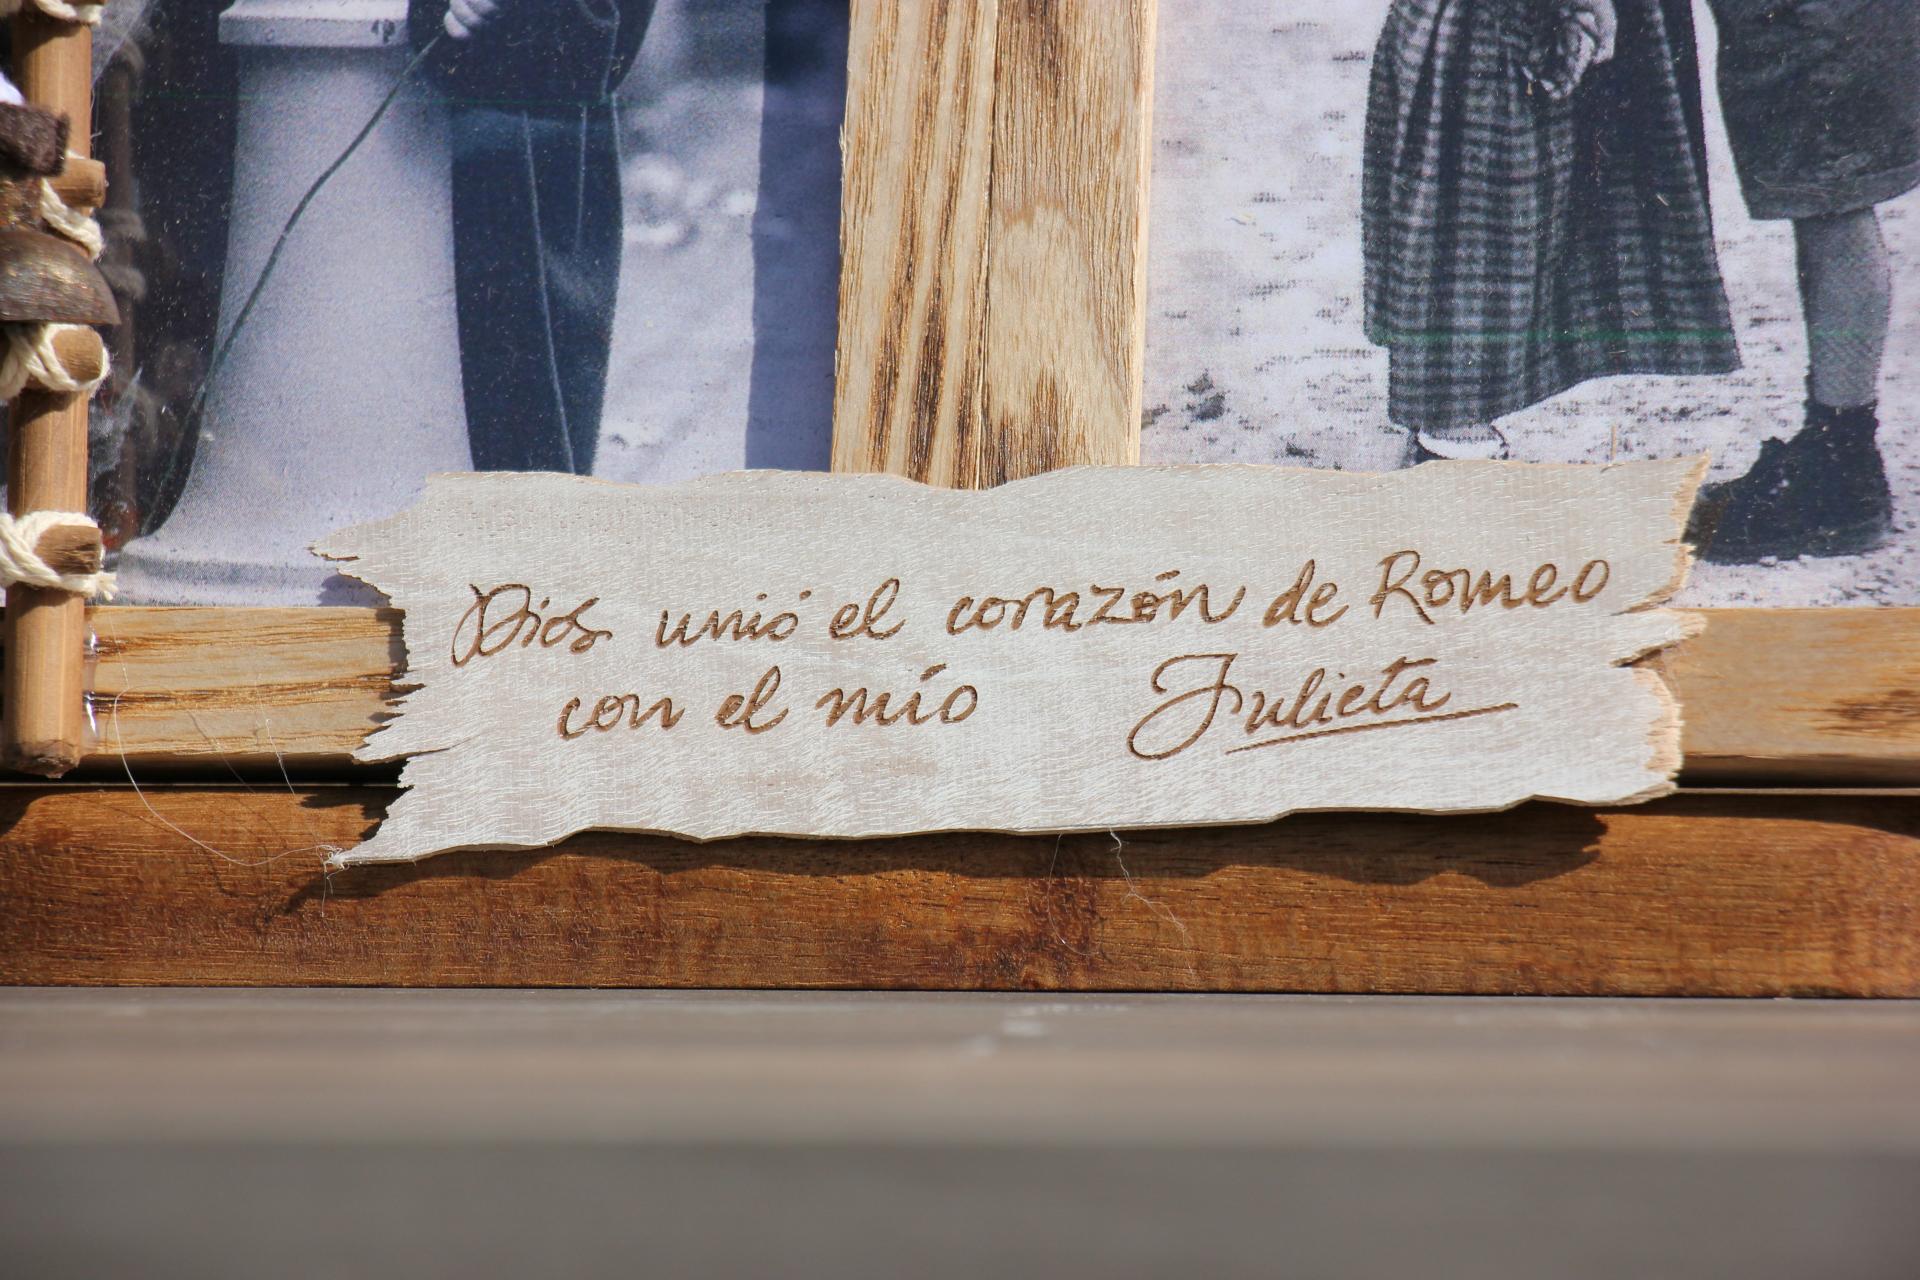 Dios unió el corazón de Romeo
con el mío Julieta